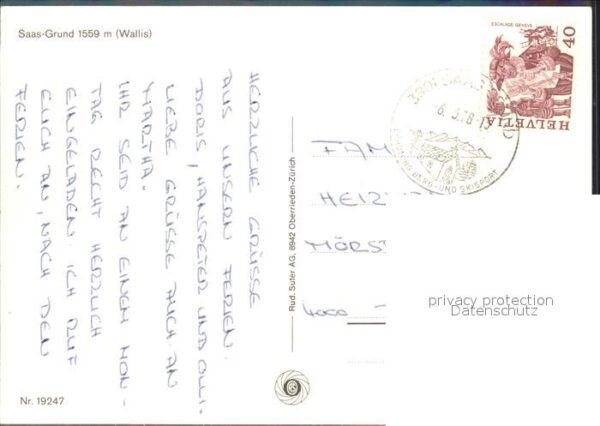 Saas-Grund 1559 m (Wallis)
HERZLICHE GRÜSSE
AUS UNSERN FERIEN.
DORIS, HANSPETER UND OLLI.
LIEBE GRÜSSE AUCH AN
MARTHA.
IHR SEID AN EINEM MON-
TAG RECHT HERZLICH
EINGELADEN. ICH RUF
EUCH AN, NACH DEN
FERIEN.
Nr. 19247
Rud. Suter AG, 8942 Oberrieden-Zürich
ESCALADE GENEVE
40
HELVETIA
-6.
78-
BERG- UND SKISPORT
FAM
HEIZ
MÖRS
4000
privacy protection
Datenschutz